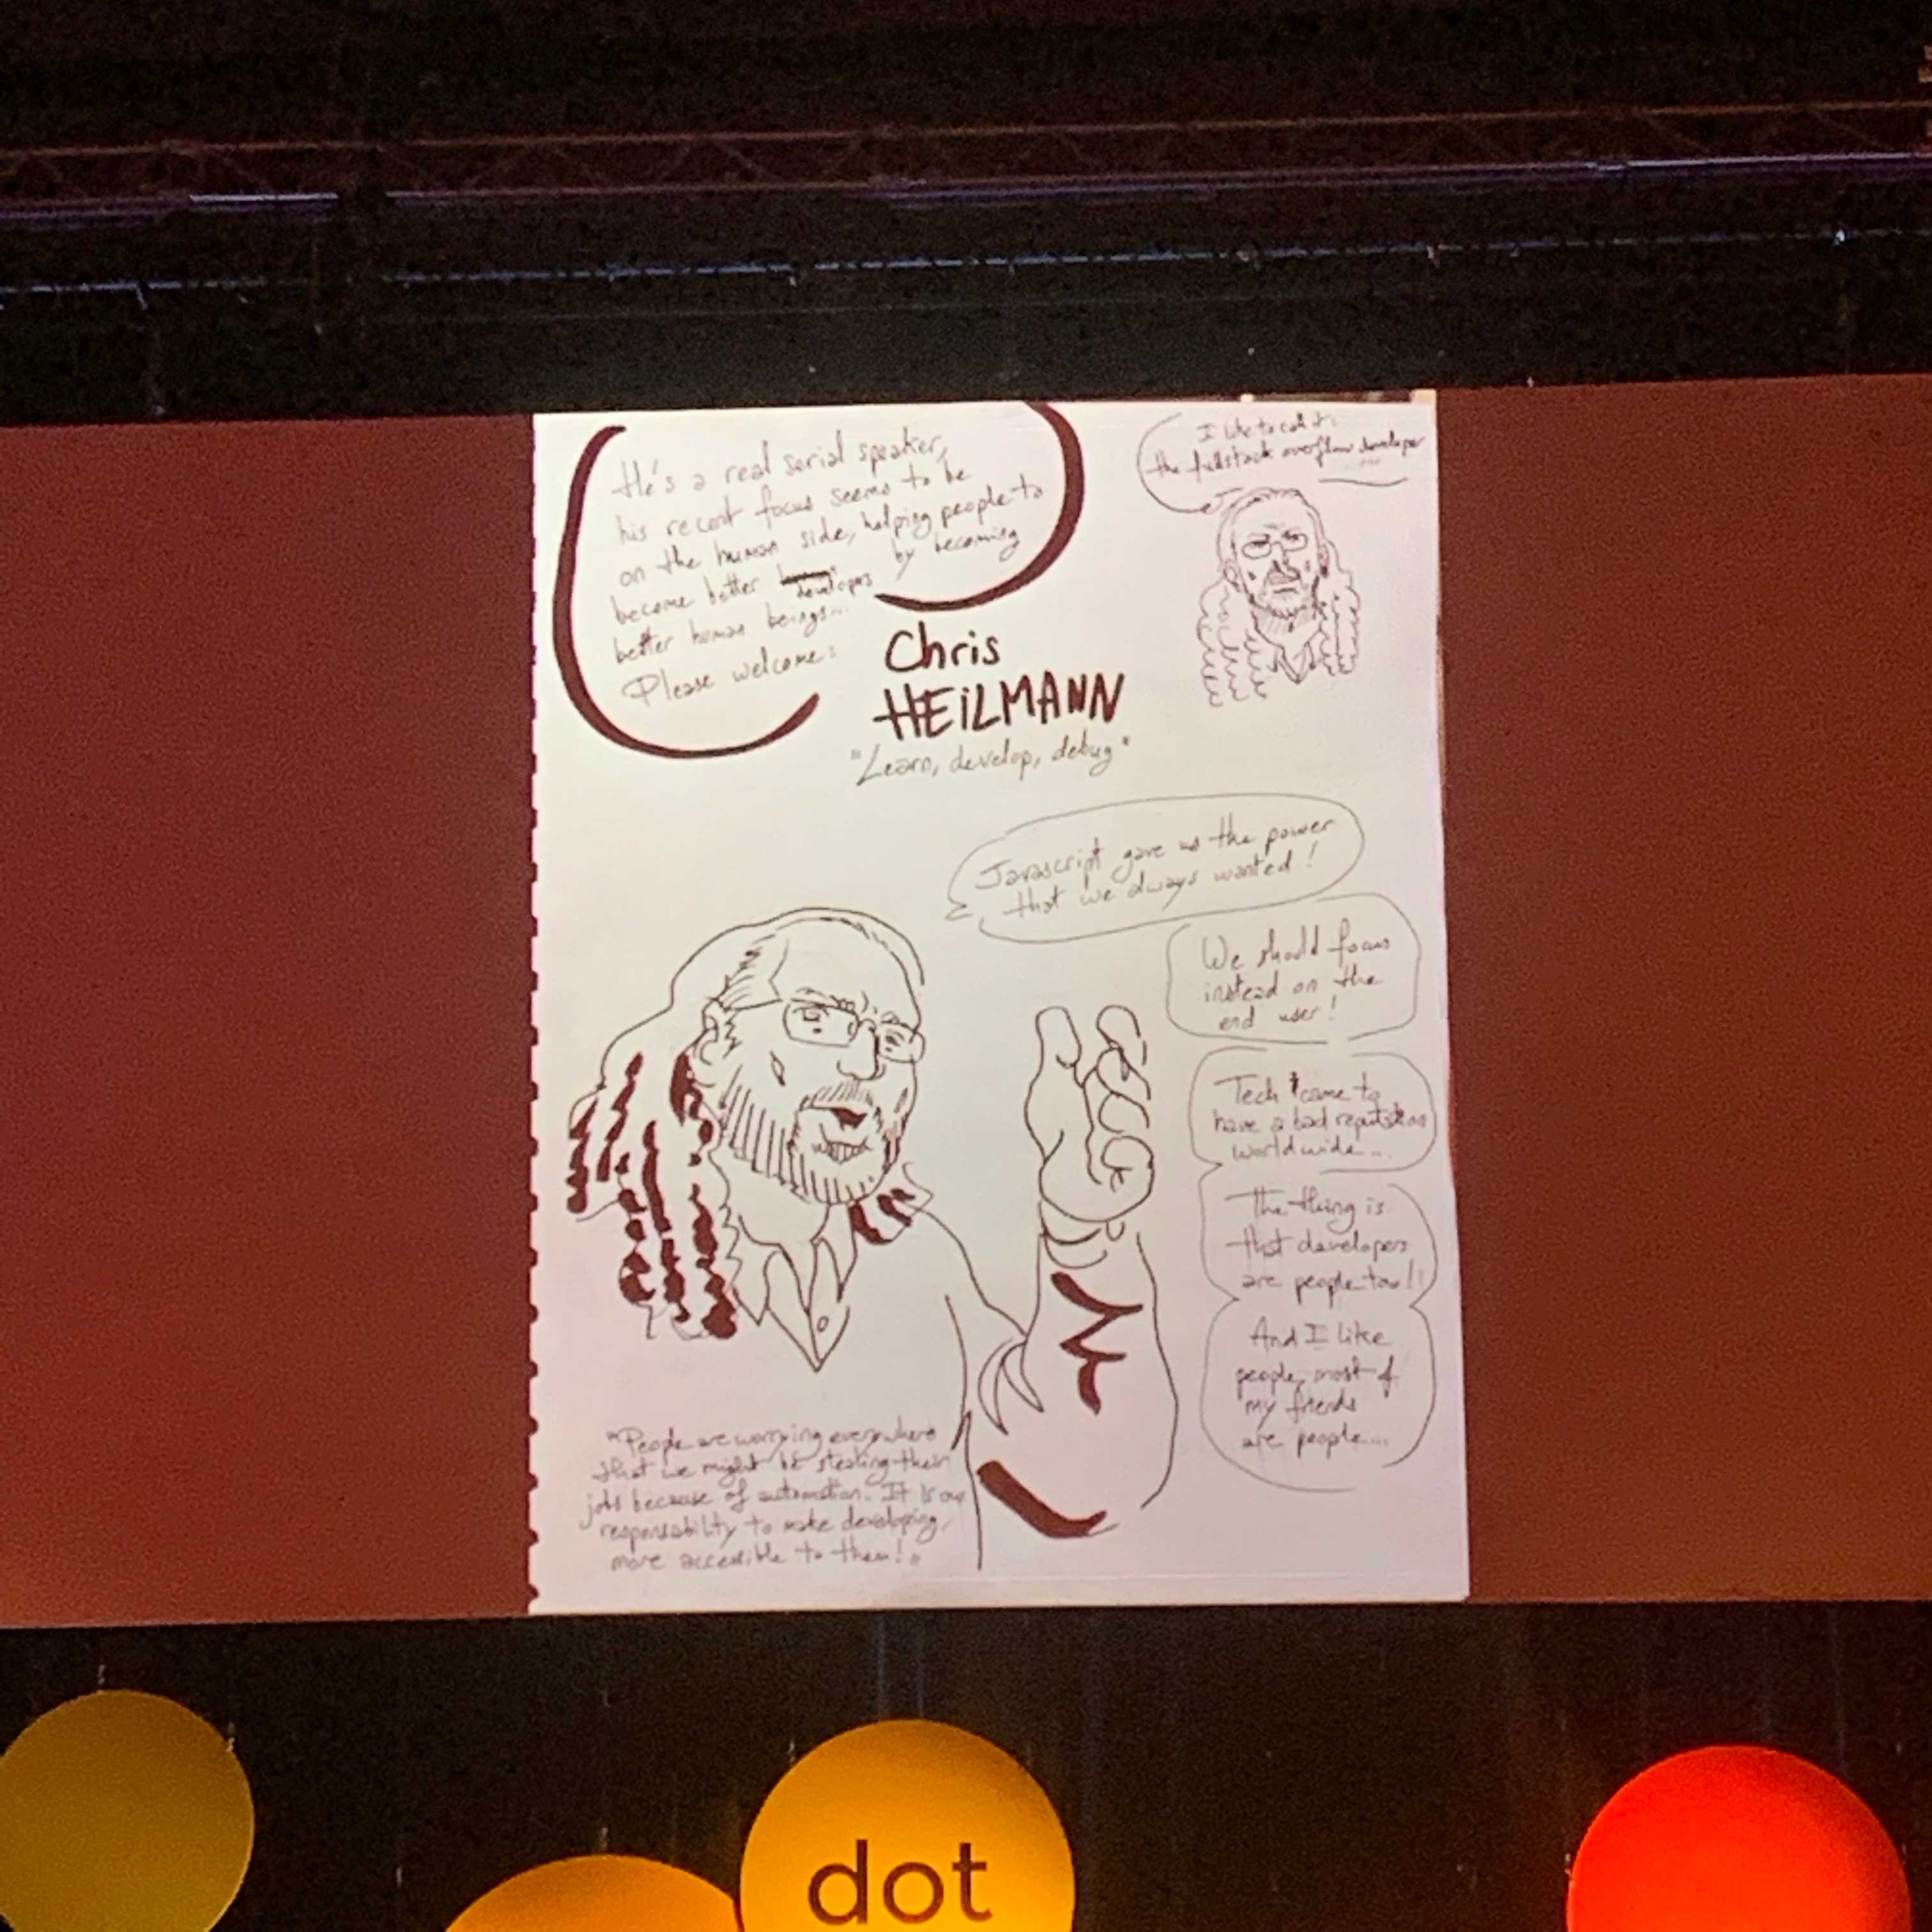 He's a real serial speaker,
his recent focus seems to be
on the human side, helping people to
become better developers by becoming
better human beings...
Please welcome:
Chris
HEILMANN
"Learn, develop, debug"
I like to call it:
the fullstack overflow developer
Javascript gave us the power
that we always wanted!
We should focus
instead on the
end user!
Tech came to
have a bad reputation
worldwide...
The thing is
that developers
are people too!
And I like
people, most of
my friends
are people...
"People are worrying everywhere
that we might be stealing their
jobs because of automation. It is our
responsability to make developing
more accessible to them!"
dot